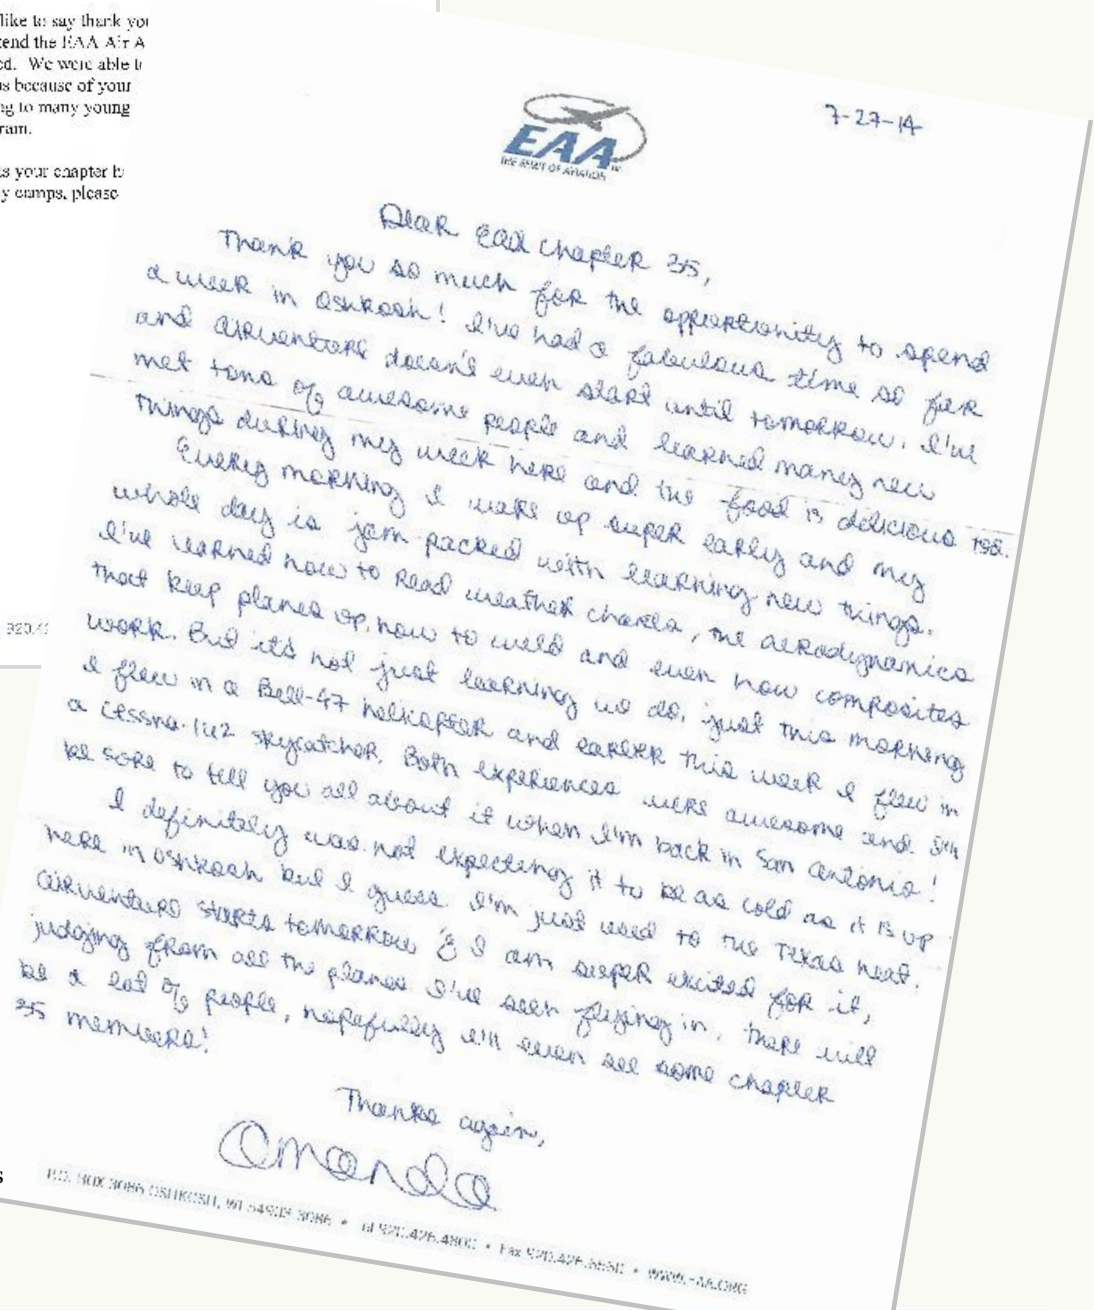 like to say thank you
tend the EAA Air A
ed. We were able t
s because of your
ng to many young
ram.
s your chapter h
y camps, please
920.4
s
EAA
THE SPIRIT OF AVIATION
7-27-14
Dear EAA Chapter 35,
Thank you so much for the opportunity to spend
a week in Oshkosh! I've had a fabulous time so far
and Airventure doesn't even start until tomorrow. I've
met tons of awesome people and learned many new
things during my week here and the food is delicious too.
Every morning I wake up super early and my
whole day is jam-packed with learning new things.
I've learned how to read weather charts, the aerodynamics
that keep planes up, how to weld and even how composites
work. But it's not just learning we do, just this morning
I flew in a Bell-47 helicopter and earlier this week I flew in
a Cessna-162 skycatcher. Both experiences were awesome and I'll
be sure to tell you all about it when I'm back in San Antonio!
I definitely was not expecting it to be as cold as it is up
here in Oshkosh but I guess I'm just used to the Texas heat.
Airventure starts tomorrow & I am super excited for it,
judging from all the planes I've seen flying in, there will
be a lot of people, hopefully I'll even see some chapter
35 members!
Thanks again,
Amanda
P.O. BOX 3086 OSHKOSH, WI 54903-3086 • tel 920.426.4800 • Fax 920.426. • WWW.EAA.ORG